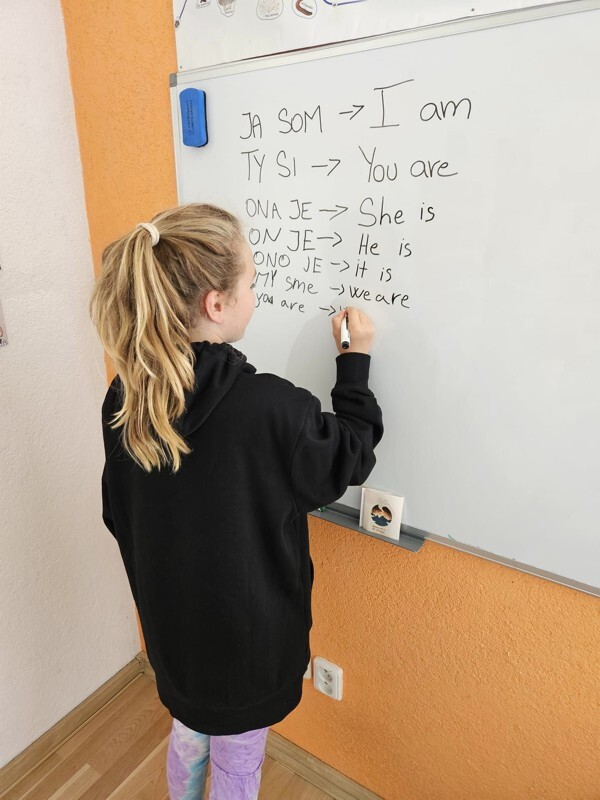 JA SOM → I am
TY SI → You are
ONA JE → She is
ON JE → He is
ONO JE → it is
MY sme → we are
you are →